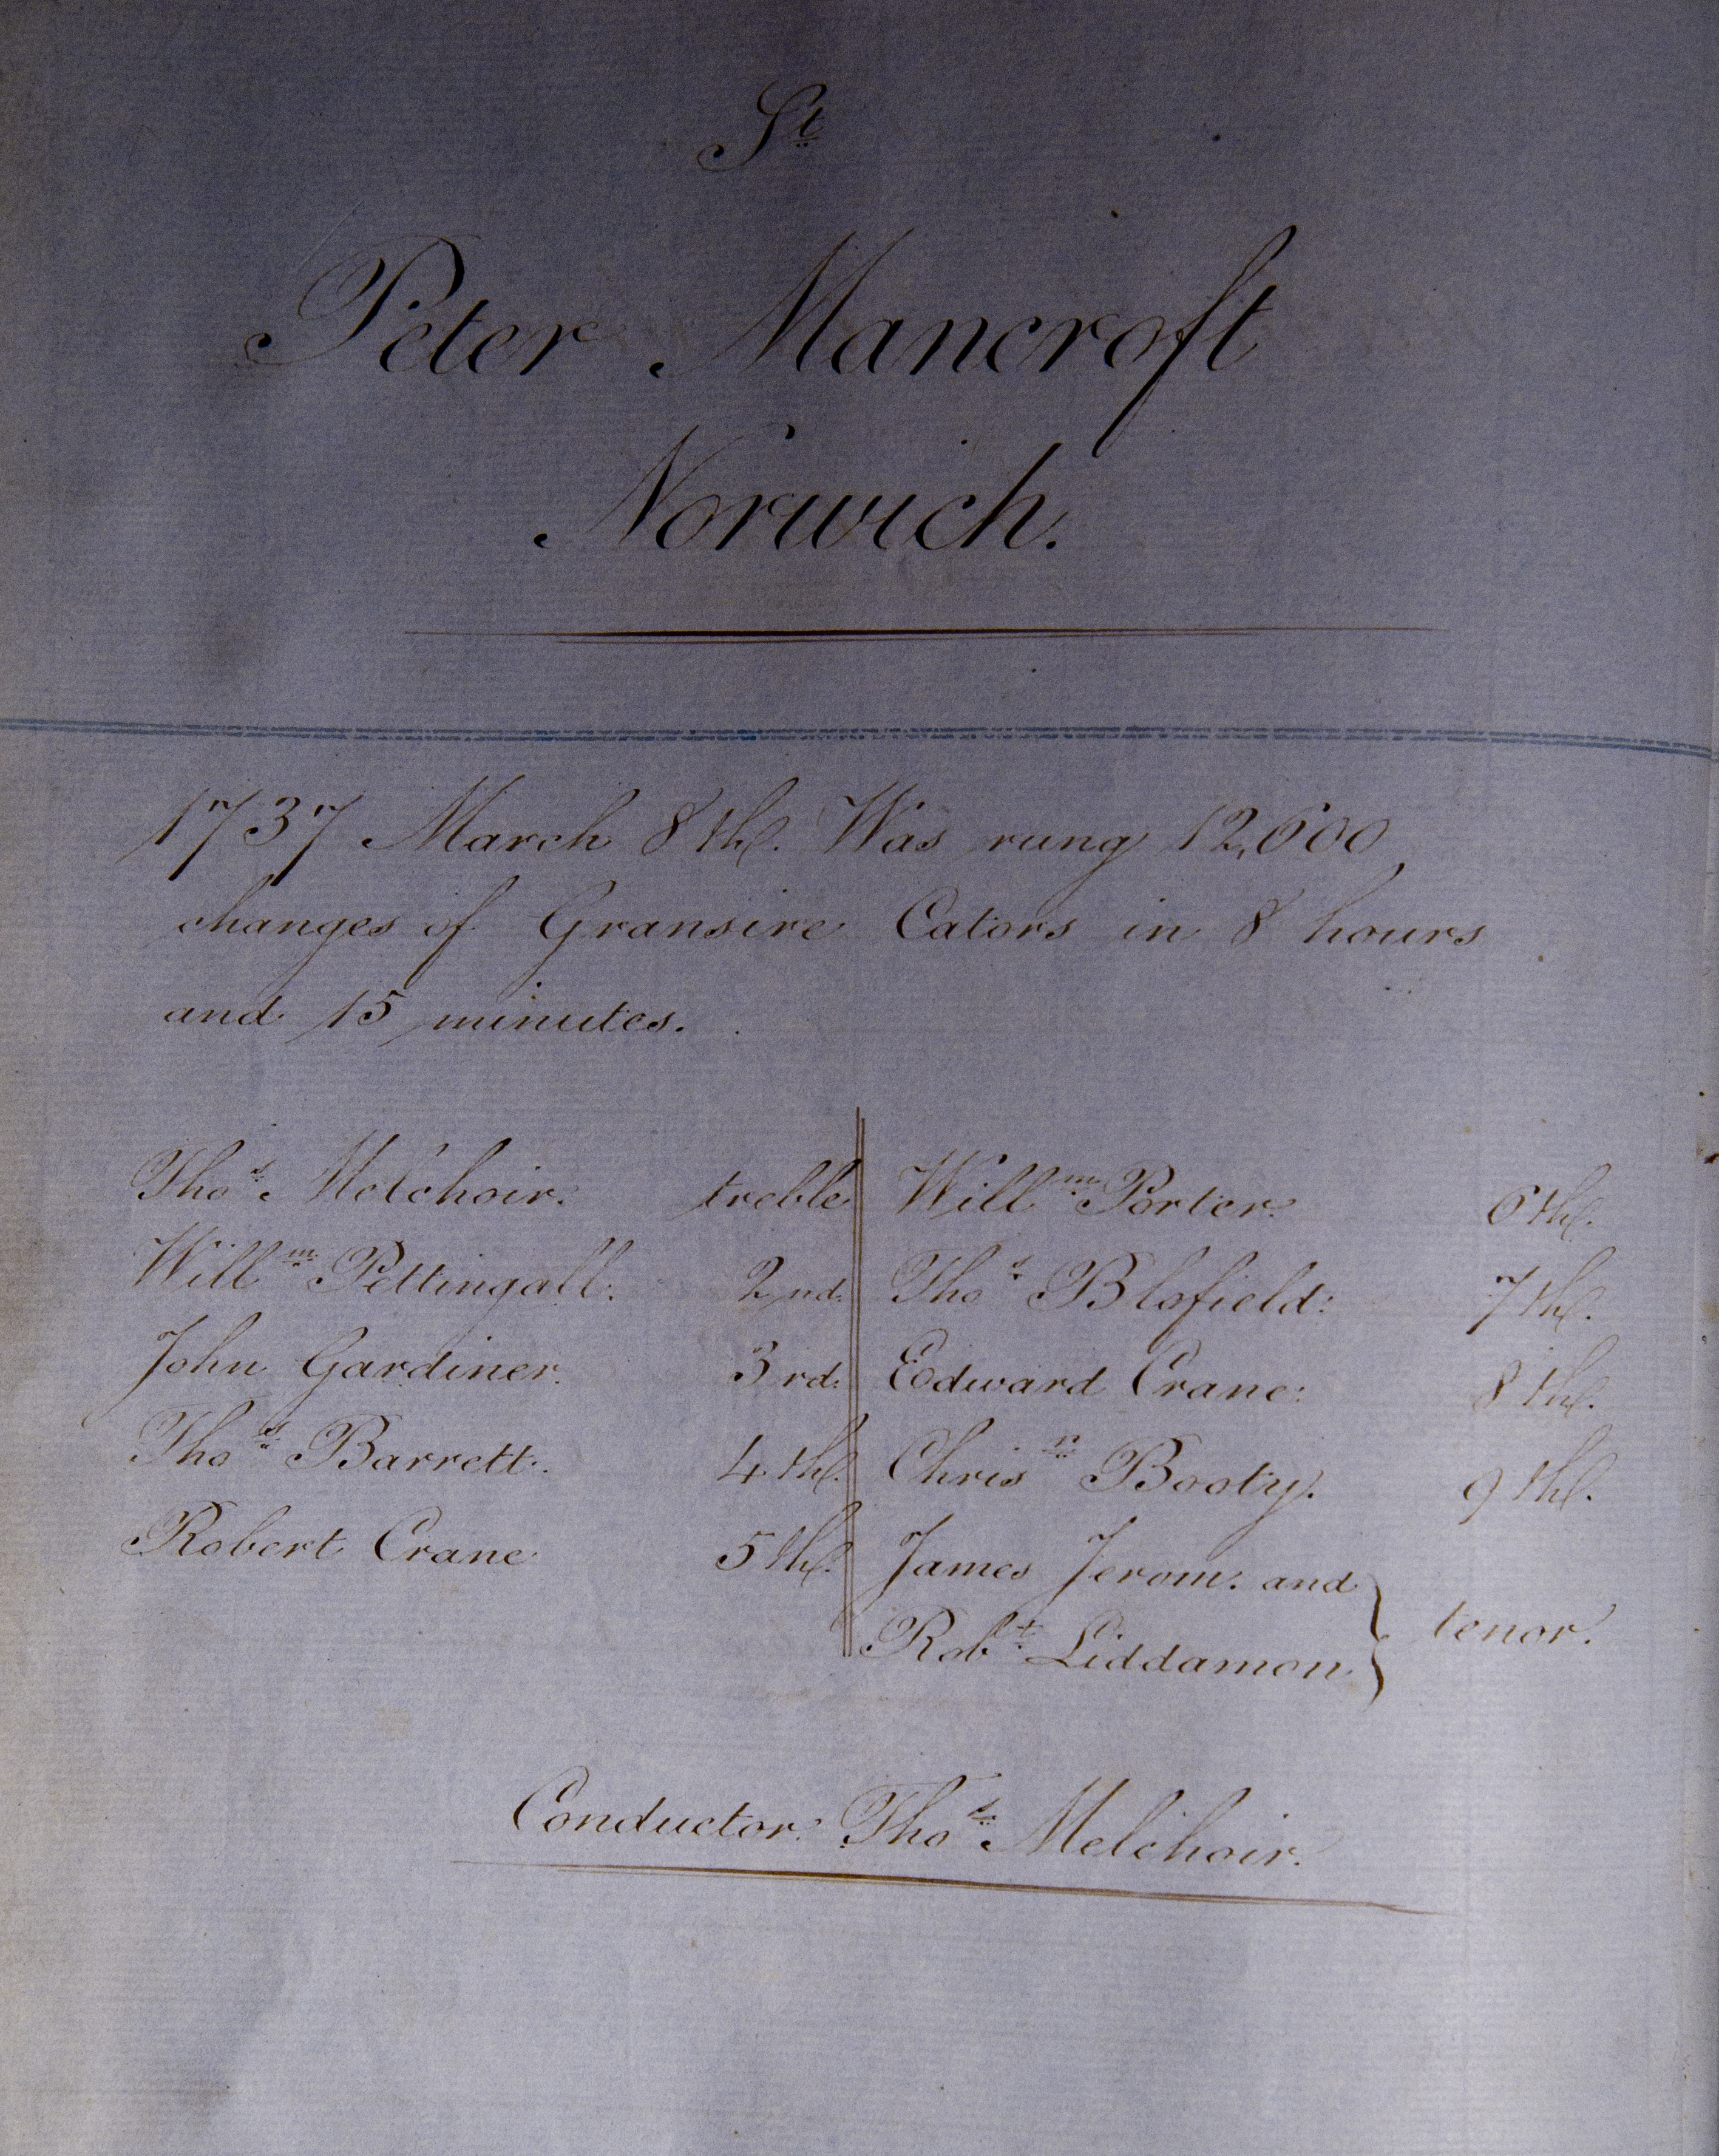 St
Peter Mancroft
Norwich.
1737 March 8th. Was rung 12,600
changes of Gransire Cators in 8 hours
and 15 minutes.
Thos. Melchoir. treble
Willm. Pettingall. 2nd.
John Gardiner. 3rd.
Thos. Barrett. 4th.
Robert Crane 5th.
Willm. Porter. 6th.
Thos. Blofield: 7th.
Edward Crane: 8th.
Chrisr. Booty. 9th.
James Jerom. and
Robt. Liddamon. tenor.
Conductor. Thos. Melchoir.